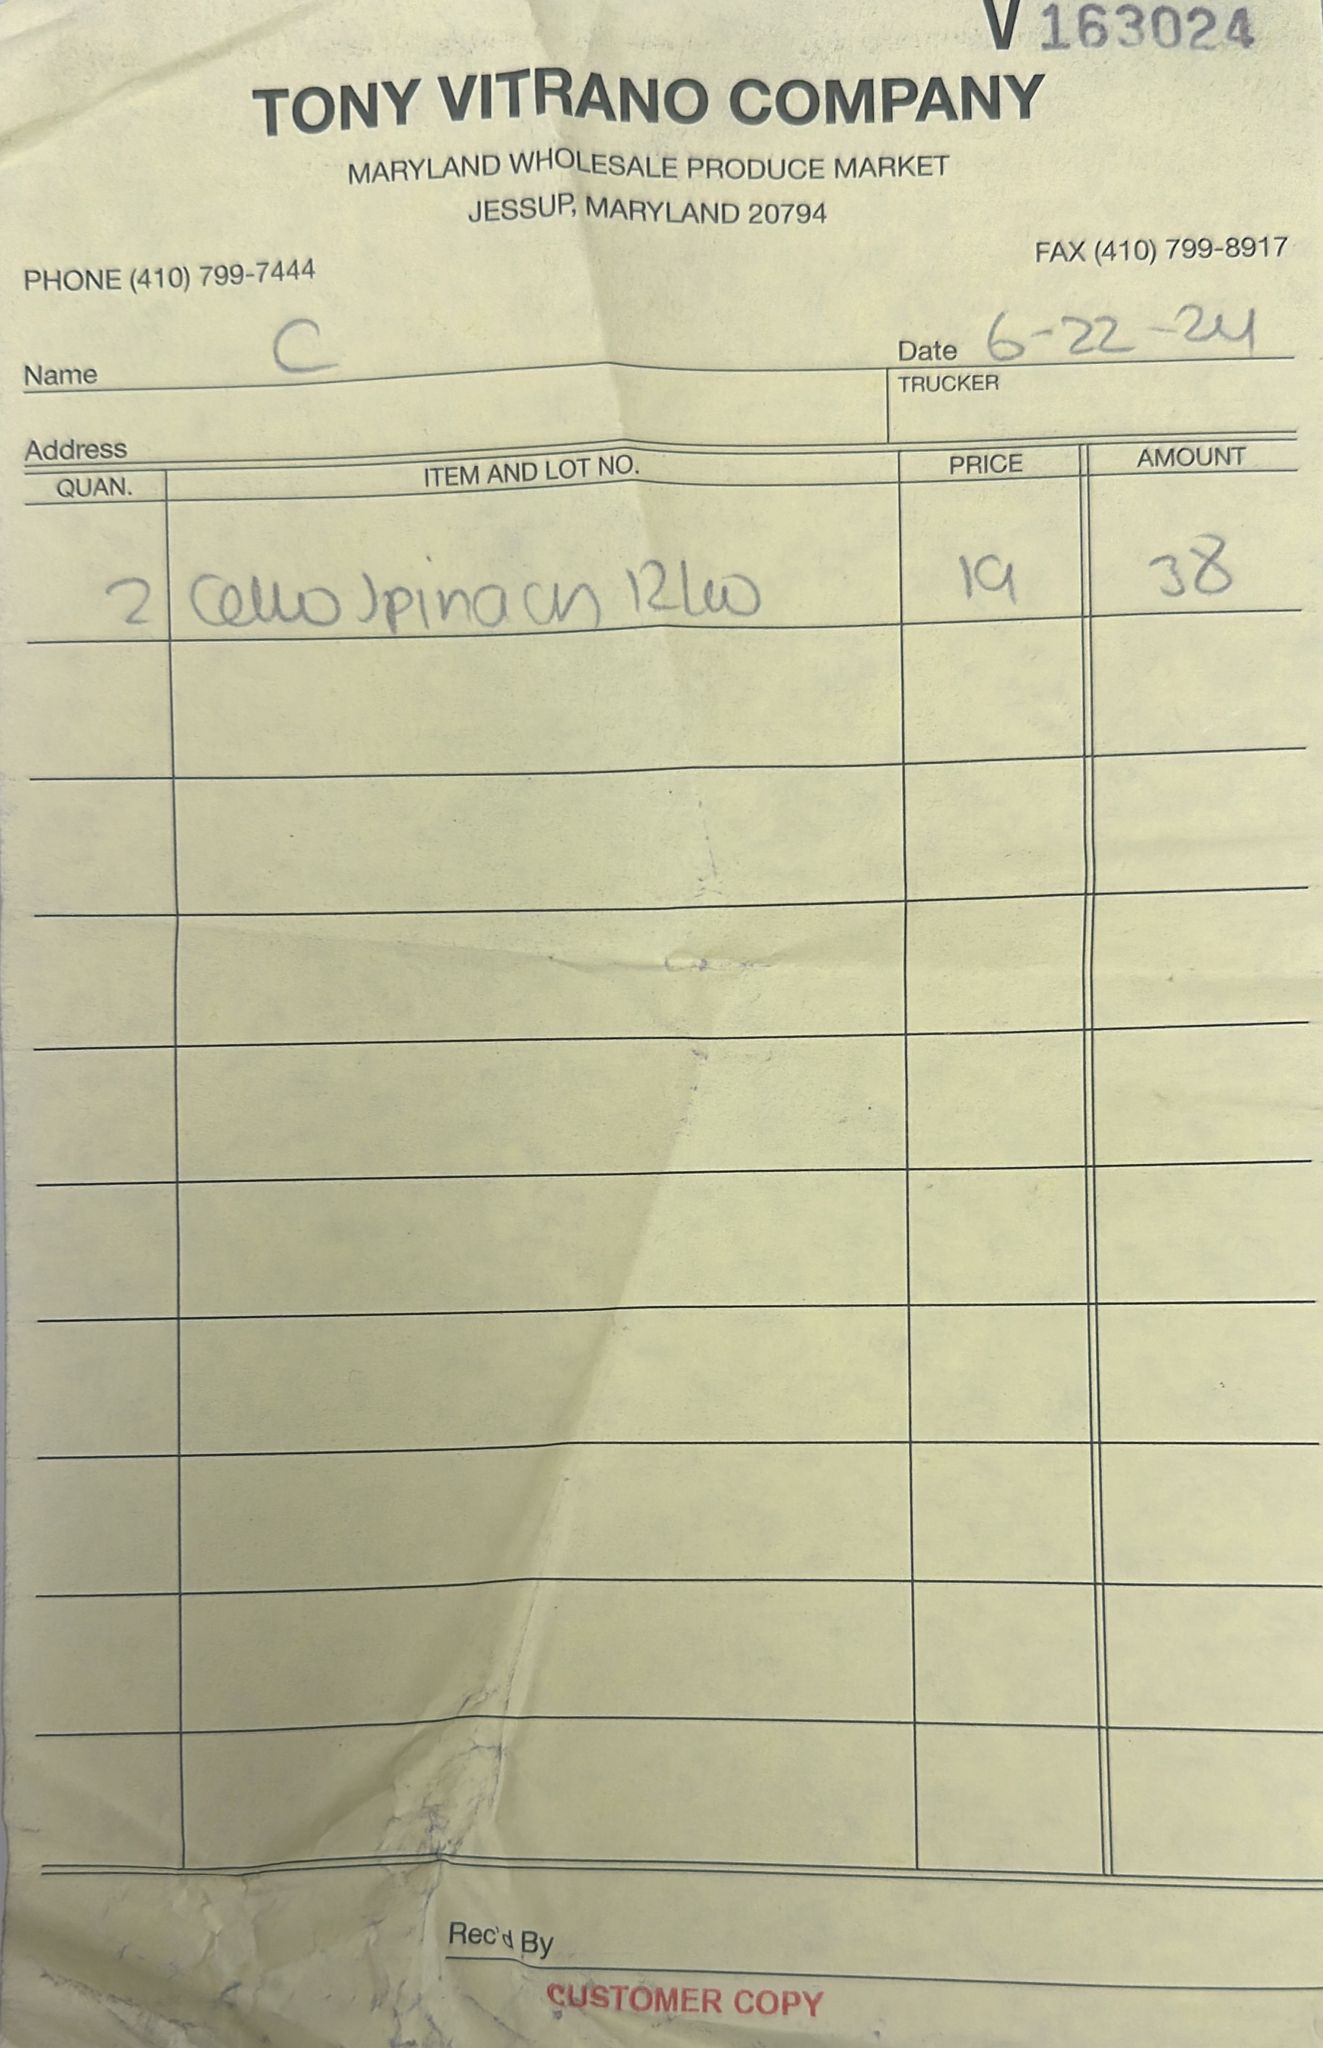 V 163024
TONY VITRANO COMPANY
MARYLAND WHOLESALE PRODUCE MARKET
JESSUP, MARYLAND 20794
PHONE (410) 799-7444 FAX (410) 799-8917
Name C Date 6-22-24
TRUCKER
Address
QUAN. ITEM AND LOT NO. PRICE AMOUNT
2 Cello Spinach 12/10 19 38
Rec'd By
CUSTOMER COPY